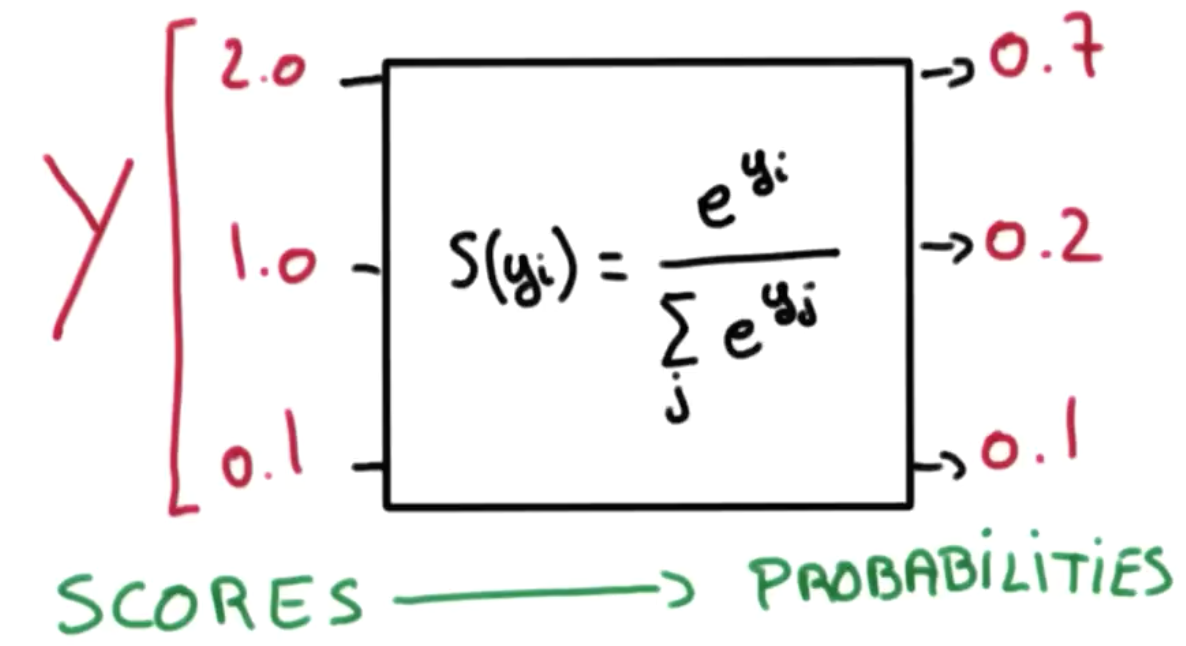 2.0 0.7
Y
1.0 S(yᵢ) = e^{yᵢ} / ∑ⱼ e^{yⱼ} 0.2
0.1 0.1
SCORES → PROBABiLiTiES